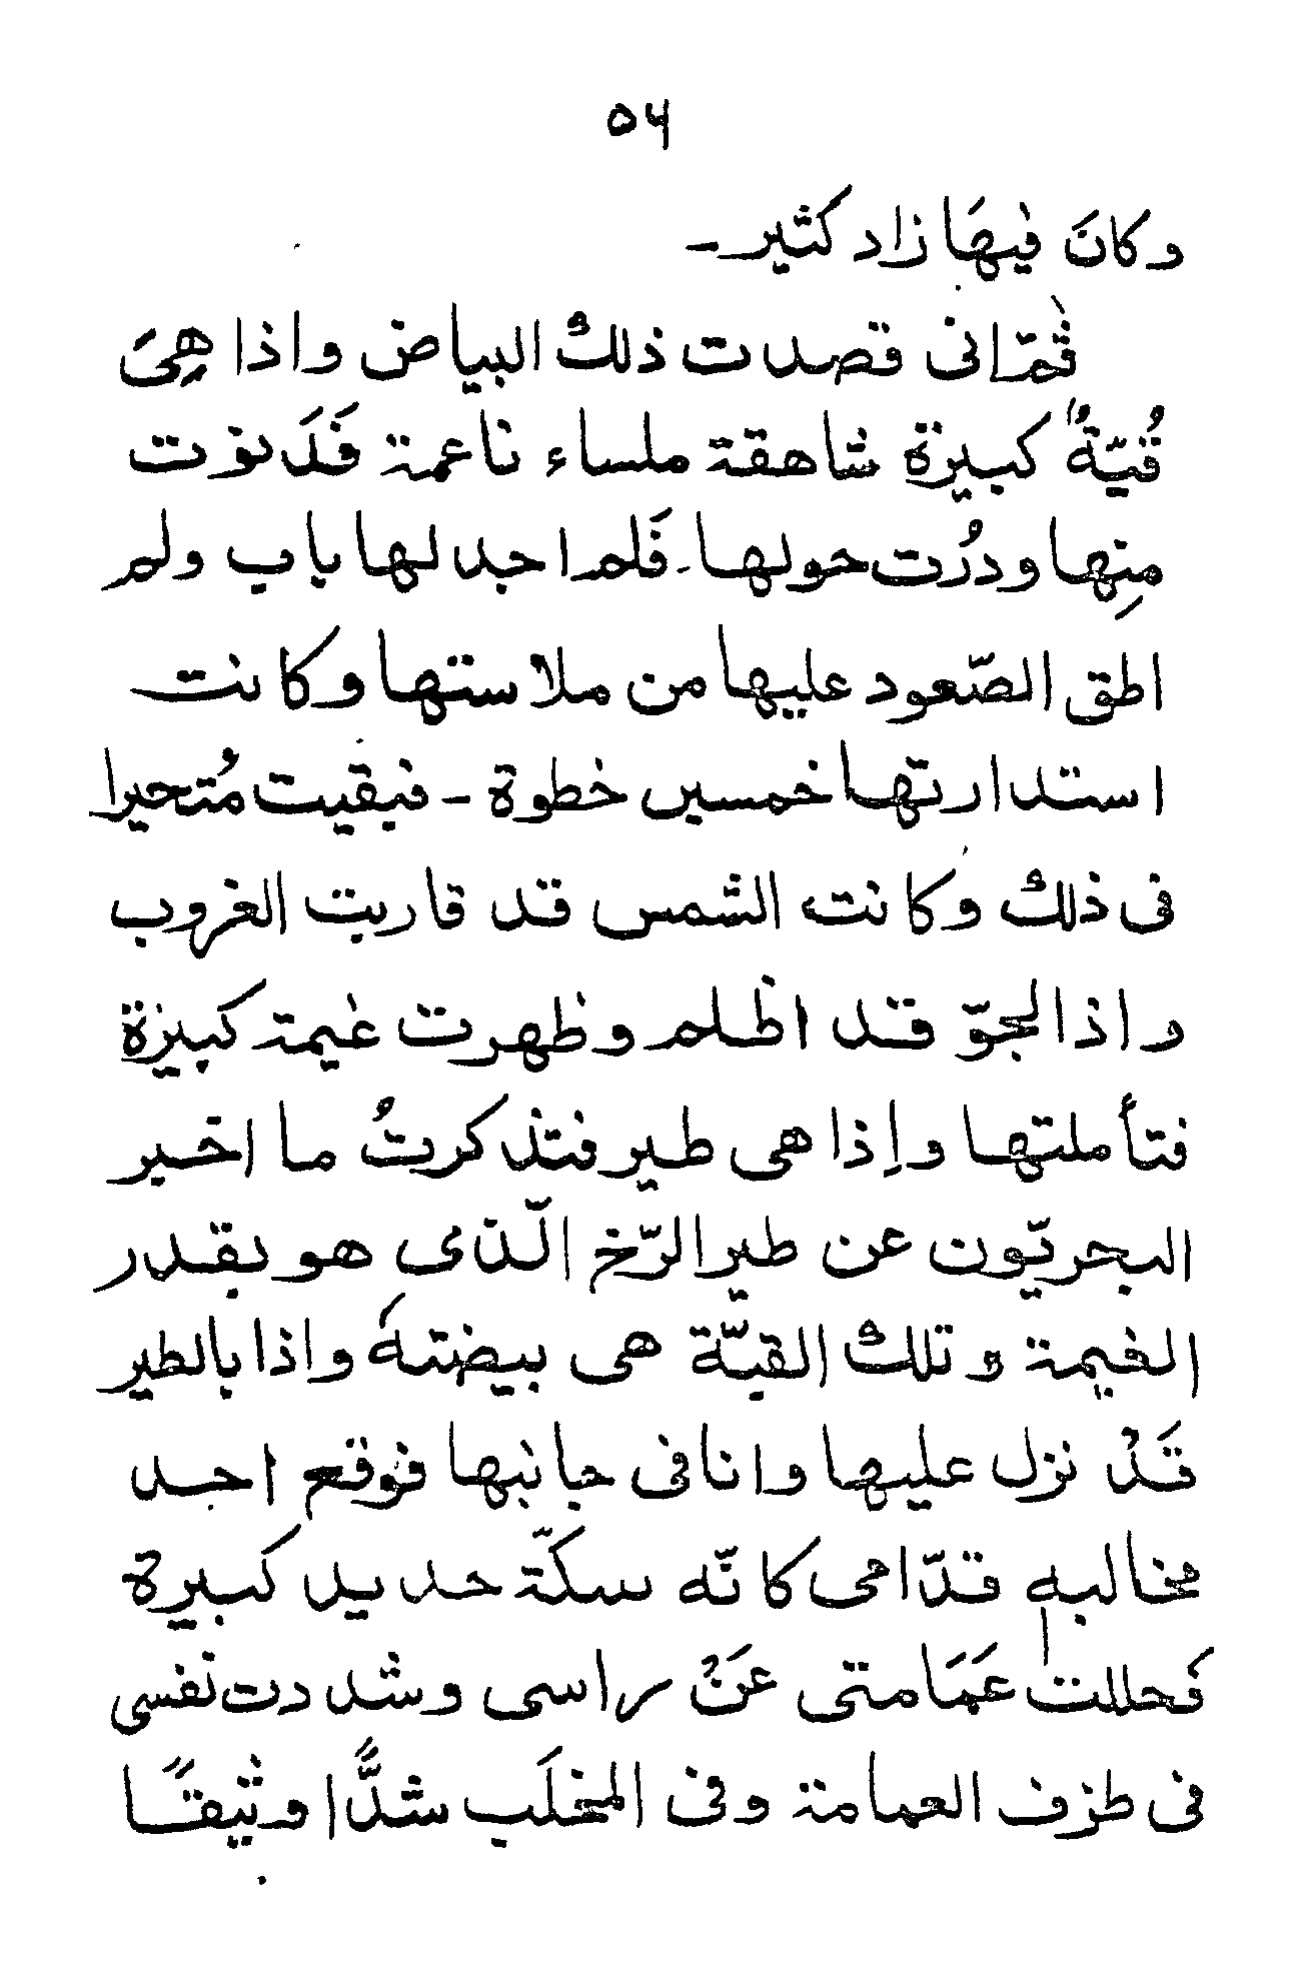 ٥٤
وكانَ فيهَا زاد كثير -
ثمّ انى قصدت ذلك البياض واذا هِىَ
قُبّةٌ كبيرة شاهقة ملساء ناعمة فَدَنوت
مِنها ودُرت حولها. فَلم اجد لها باب ولم
اطق الصّعود عليها من ملاستها وكانت
استدارتها خمسين خطوة - فبقيت مُتحيرا
فى ذلك وكانت الشمس قد قاربت الغروب
واذا لجوّ قد اظلم وظهرت غيمة كبيرة
فتأملتها وإذا هى طير فتذكرتُ ما اخبر
البحريّون عن طير الرّخ الّذى هو بقدر
الغيمة وتلك القبّة هى بيضته واذا بالطير
قَدْ نزل عليها وانا فى جانبها فوقع احد
مخالبه قدّامى كانّه سكّة حديد كبيرة
فحللت عَمَامتى عَنْ راسى وشددت نفسى
فى طرف العمامة وفى المخلَب شدًّا وثيقًا